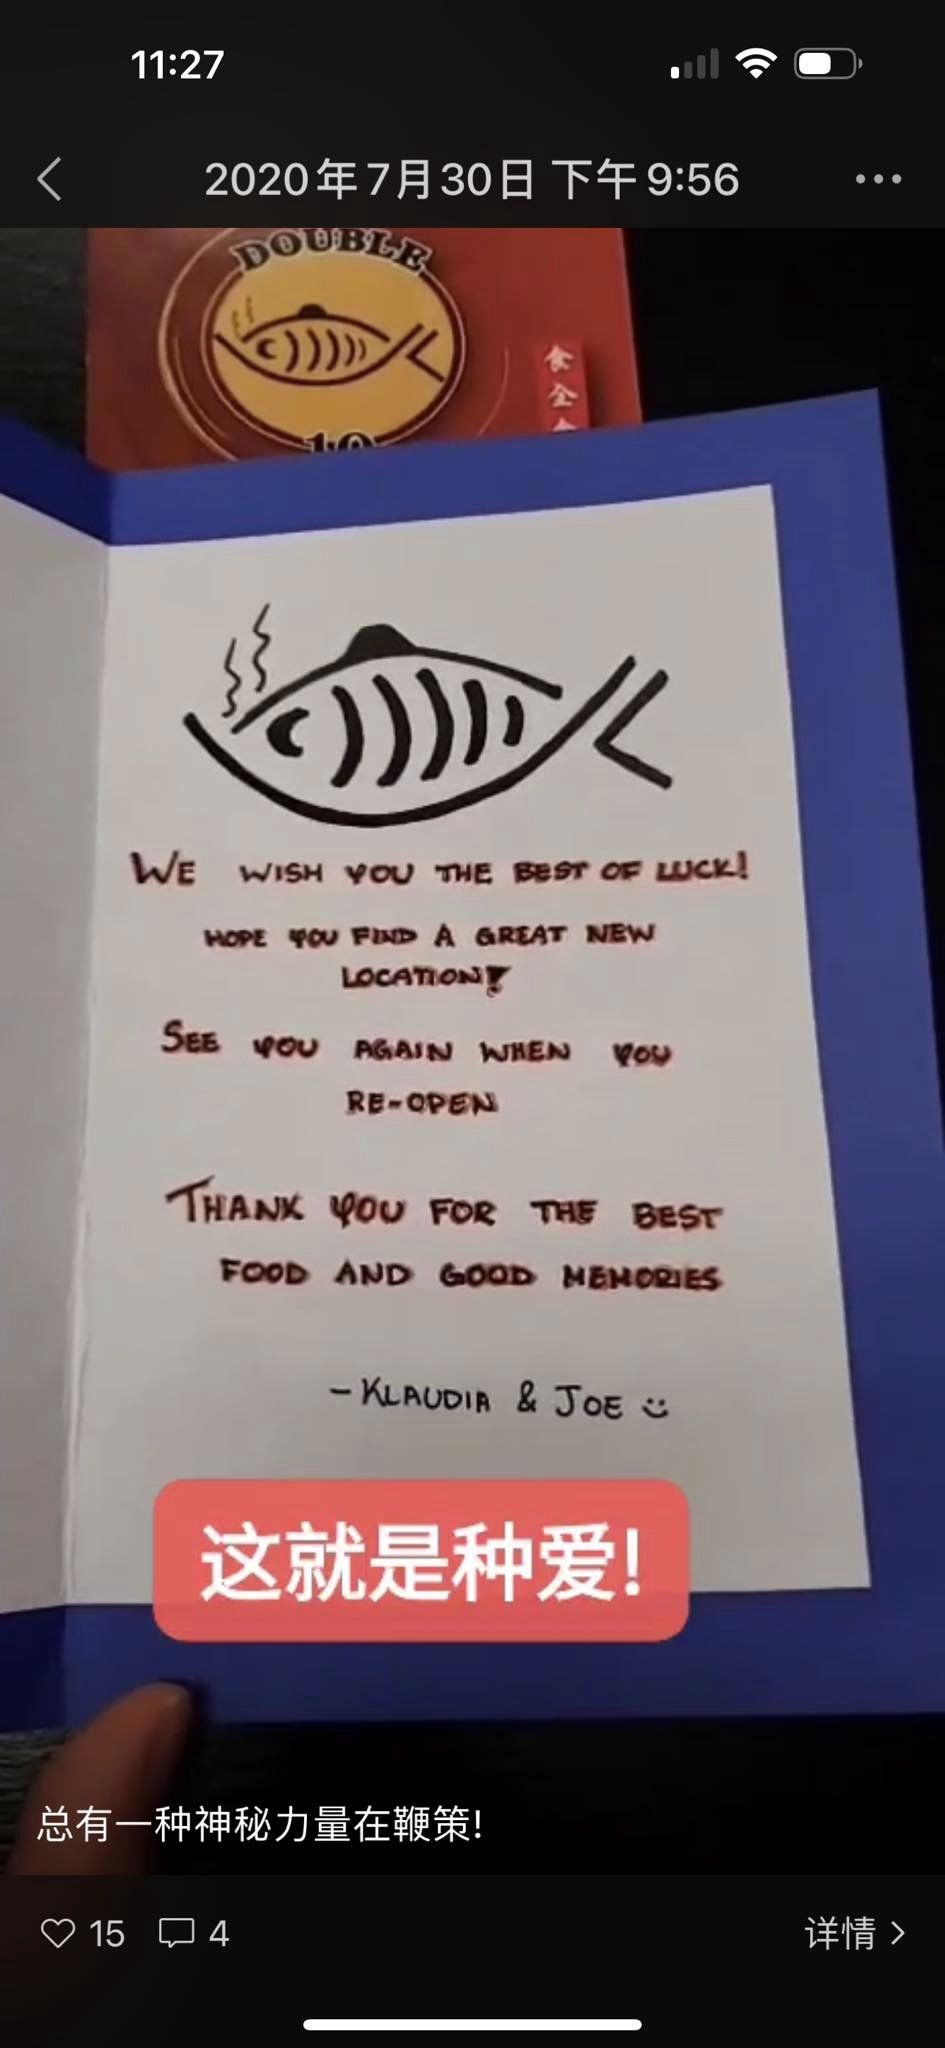 11:27
2020年7月30日 下午9:56
DOUBLE
10
食
全
WE WISH YOU THE BEST OF LUCK!
HOPE YOU FIND A GREAT NEW
LOCATION!
SEE YOU AGAIN WHEN YOU
RE-OPEN
THANK YOU FOR THE BEST
FOOD AND GOOD MEMORIES
- KLAUDIA & JOE
这就是种爱!
总有一种神秘力量在鞭策!
15 4 详情